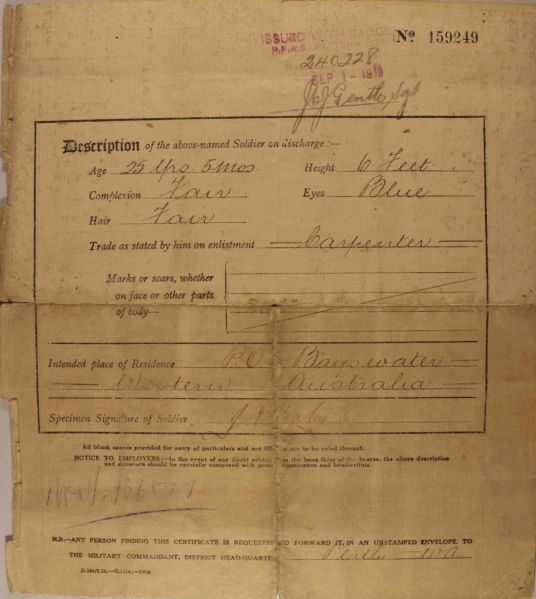 ISSUED WITH BADGE
Nº 159249
No. 240228
SEP 1 - 1919
Sgt
Description of the above-named Soldier on discharge :—
Age 25 Yrs. 5 Mos. Height 6 Feet
Complexion Fair Eyes Blue
Hair Fair
Trade as stated by him on enlistment Carpenter
Marks or scars, whether
on face or other parts
of body—
Intended place of Residence P.O. Bayswater
Western Australia
Specimen Signature of Soldier
All blank spaces provided for entry of particulars and not filled in are to be ruled through.
NOTICE TO EMPLOYERS.—In the event of any doubt arising as to the bona fides of the bearer, the above description
and signature should be carefully compared with present appearance and handwriting.
N.B.—ANY PERSON FINDING THIS CERTIFICATE IS REQUESTED TO FORWARD IT, IN AN UNSTAMPED ENVELOPE, TO
THE MILITARY COMMANDANT, DISTRICT HEAD-QUARTERS Perth WA